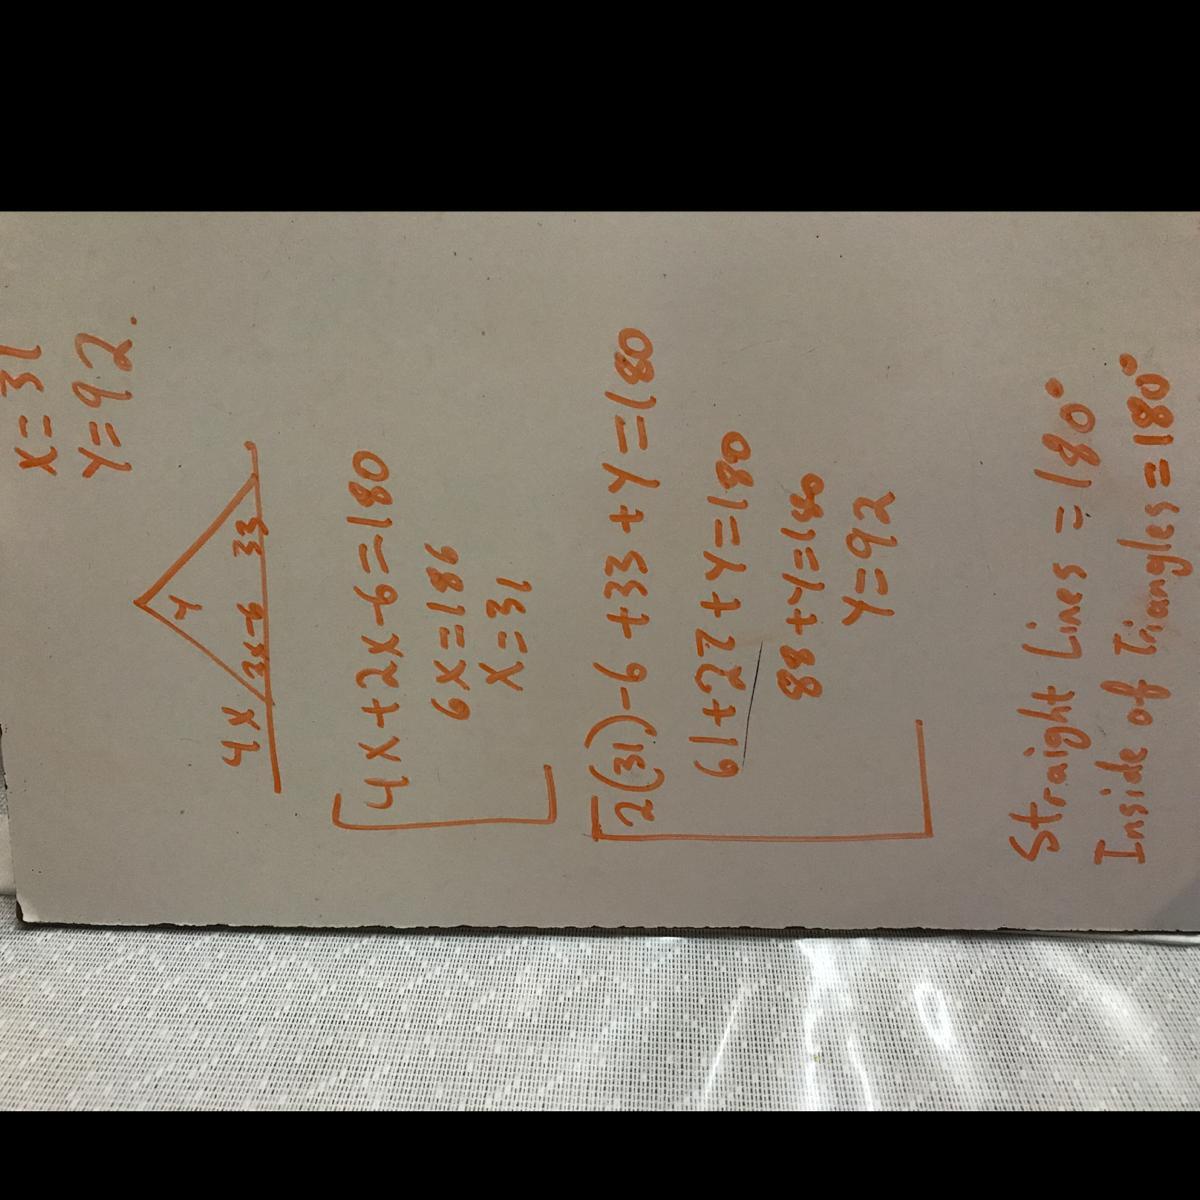 x=31
y=92.
4x
y
33
4x+2x-6=180
6x=186
x=31
2(31)-6+33+y=180
61+27+y=180
88+y=180
y=92
Straight Lines = 180°
Inside of Triangles = 180°